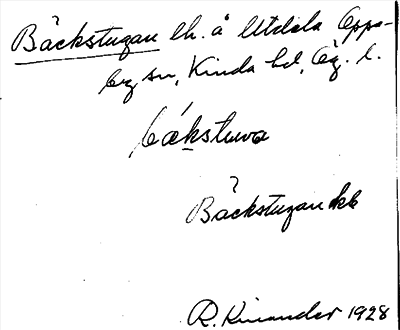 Bäckstugan lh. å Utdela Oppe-
by sn, Kinda hd, Ög. l.
bákstuva
Bäckstugan kk
R. Kinander 1928